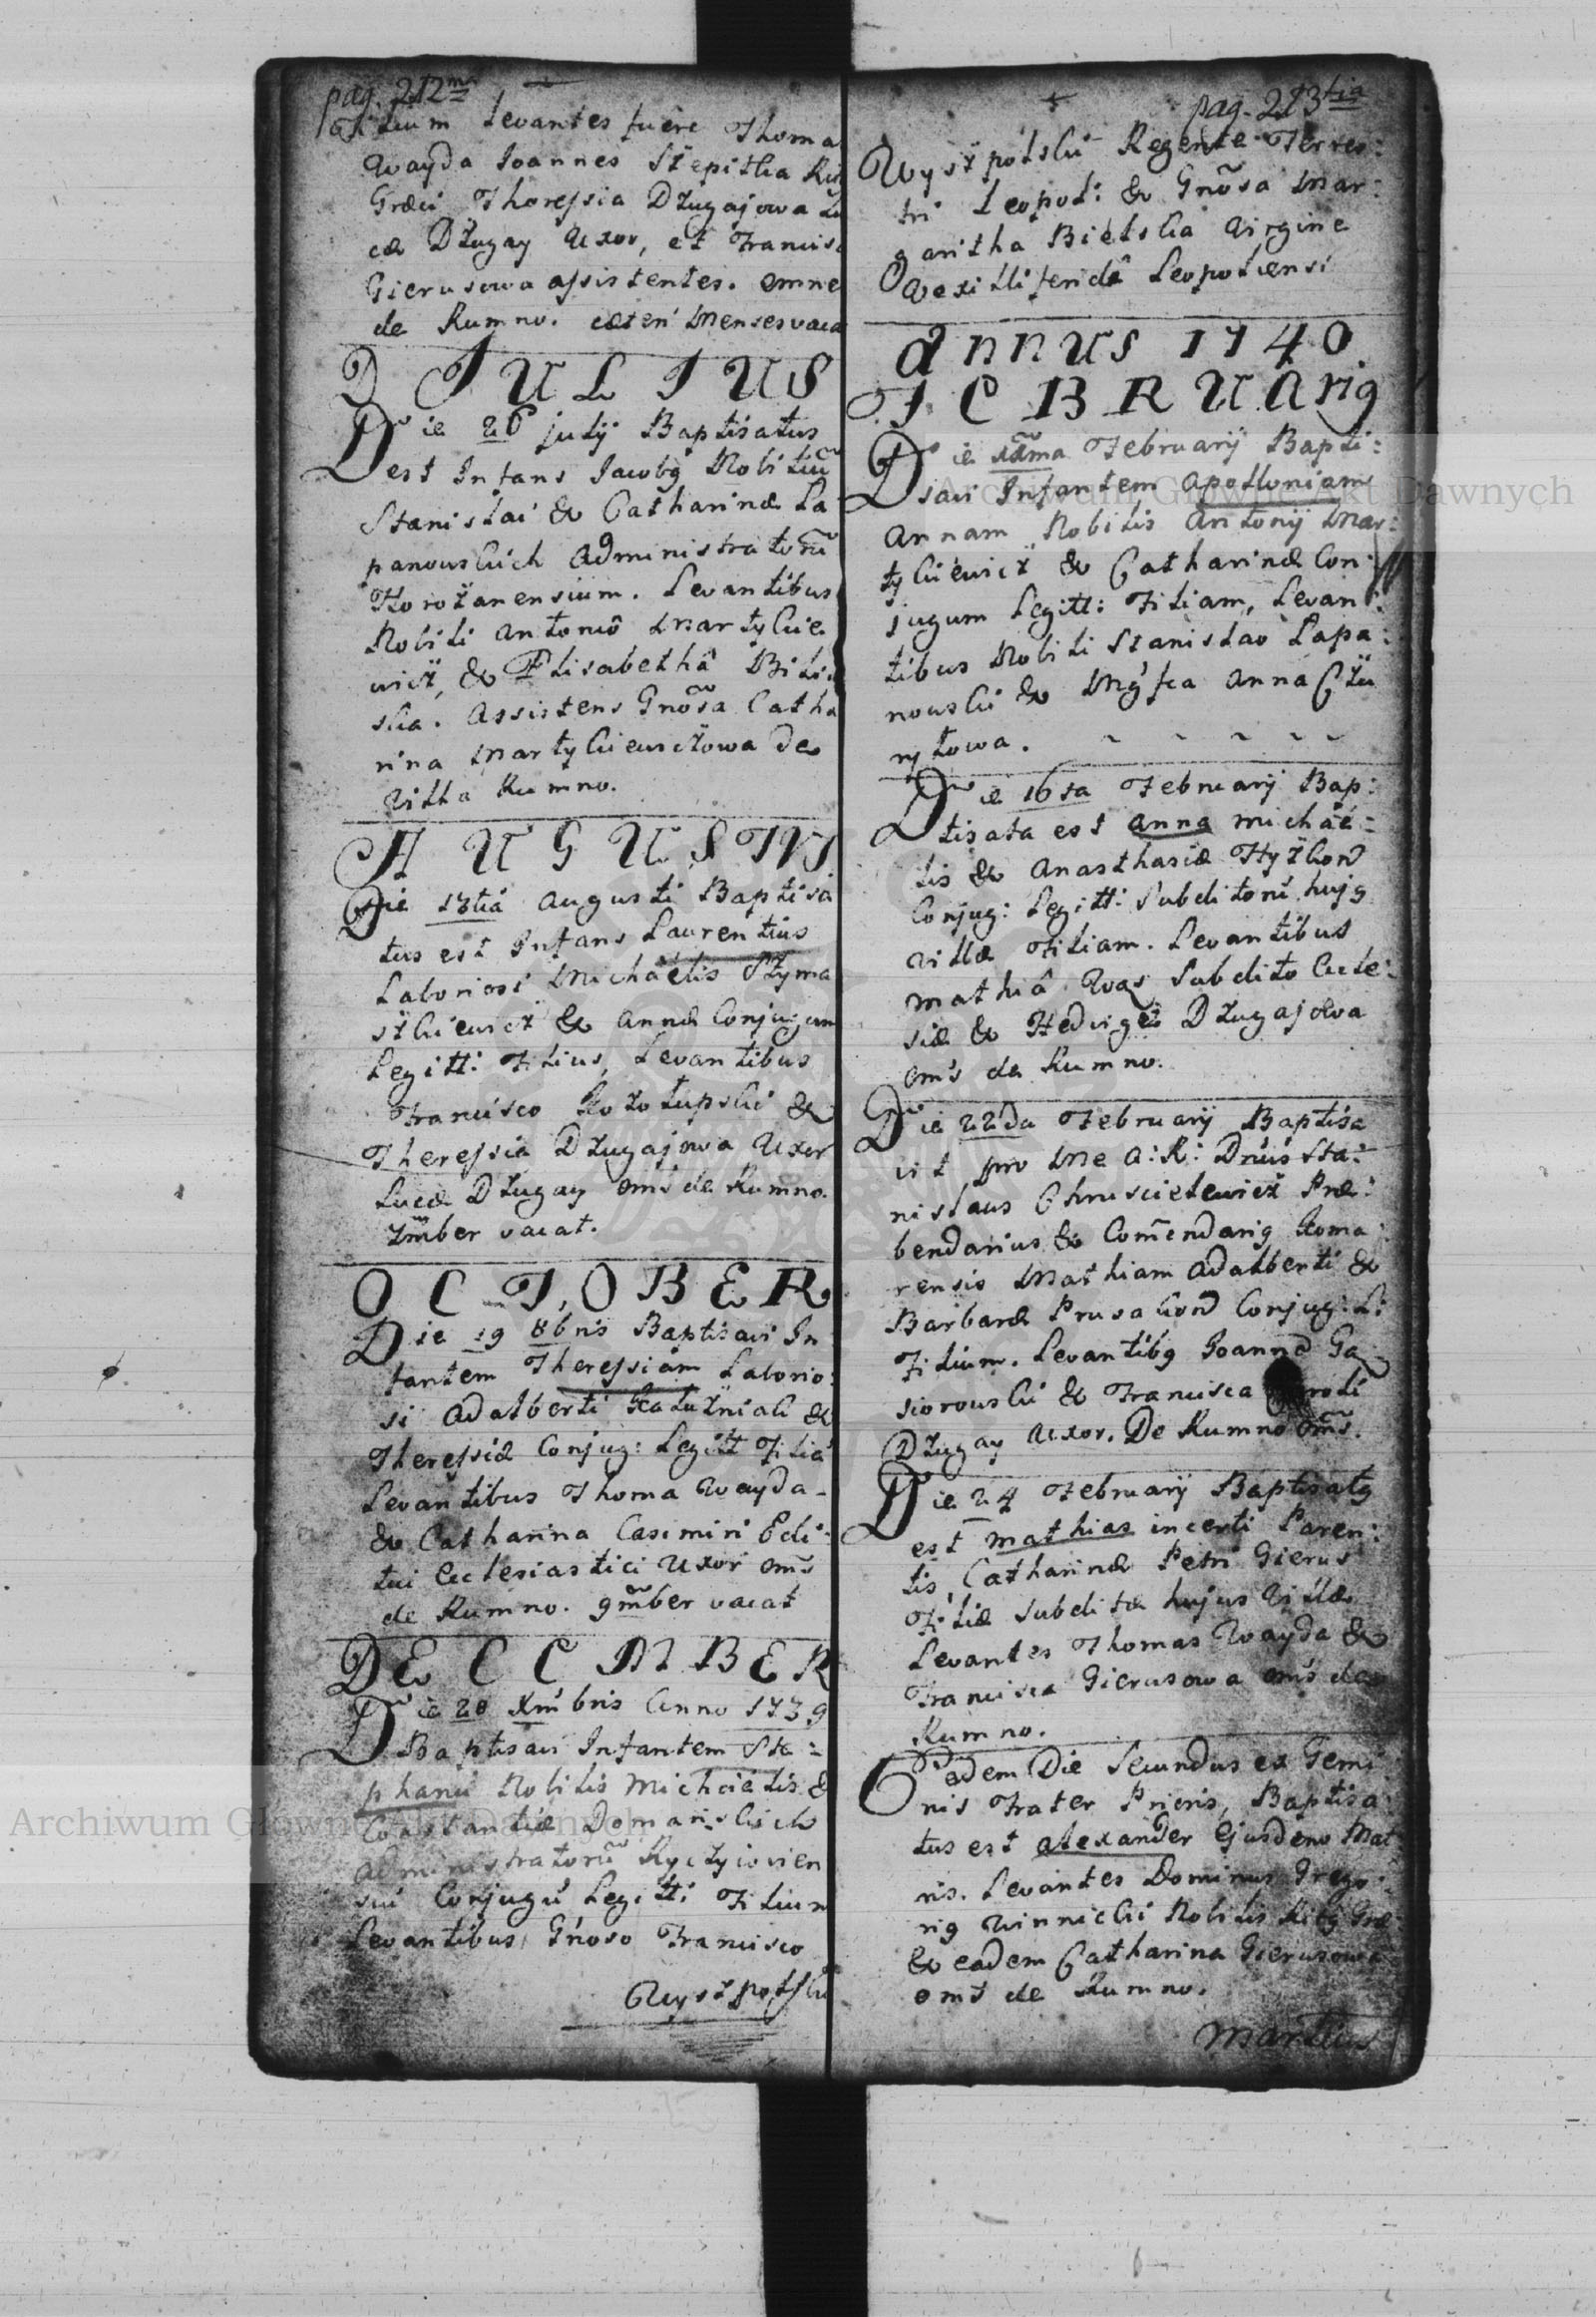 pag. 212ma
Filium Levantes fuere Thoma
Wayda Joannes Szepitka Rit
Græci Theressia Dzugajowa Lu
cæ Dzugay Uxor, et Francisc
Gierusowa assistentes. omne
de Rumno. cæteri Menses vaca
JULIUS
Die 26 julij Baptisatus
est Infans Jacobg Nobiliu
Stanislai & Catharinæ La
panouskich Administratorũ
Horożanensium. Levantibus
Nobili Antoniô Martykie
wicz, & Elisabethâ Bils
ska. Assistens Gnõsa Catha
rina Martykiewiczowa De
villa Rumno.
AUGUSTUS
Die 13tia Augusti Baptisa
tus est Infans Laurentius
Laboriosi Michaëlis Szyma
szkiewicz & Annæ Conjugum
Legitt: Filius, Levantibus
Francisco Kozołupski &
Theressia Dzugajowa Uxor
Lucæ Dzugay omš de Rumno.
7mber vacat.
OCTOBER
Die 19 8bris Baptisavi In
fantem Theressiam Laborio:
si Adalberti Kałużniak &
Theressiæ Conjug: Legitt Filiã
Levantibus Thoma Wayda
& Catharina Casimiri Edi:
tui Ecclesiastici Uxor omš
de Rumno. 9mber vacat
DECEMBER
Die 28 Xmbris Anno 1739
Baptisavi Infantem Ste:
phanũ Nobilis Michaelis &
Constantiæ Domanskich
Administratorũ Ryczyiovien
siũ Conjugũ Legitt: Filium
Levantibus Gnoso Francisco
Wyszpolski
pag. 213tia
Wyszpolski Regente Terres:
tri Leopol: & Gnõsa Mar:
garitha Bielska Virgine
Vexilliferidâ Leopoliensi
Annus 1740
FEBRUArig
Die Februarij Bapti:
savi Infantem Apolloniam
Annam Nobilis Antonij Mar:
tykiewicz & Catharinæ Con:
jugum Legitt: Filiam, Levan:
tibus Nobili Stanislao Lapa:
nouski & Mgfca Anna Czu
ryłowa.
Die 16ta Februarij Bap:
tisata est Anna Michaë:
lis & Anasthasiæ Hyżkow
Conjug: Legitt: Subditorũ hujg
villæ Filiam. Levantibus
Mathiâ Wąs Subdito Eccle:
siæ & Hedvige Dzugajowa
omš de Rumno.
Die 22da Februarij Baptisa
vit pro Me A:R: Dnus Sta:
nislaus Chruscielewicz Præ:
bendarius & Comẽndarig Koma:
rensis Mathiam Adalberti &
Barbaræ Prusakow Conjug: L:
Filium. Levantibg Joanne Gą
siorouski & Francisca
Dzugay Uxor. De Rumno omš.
Die 24 Februarij Baptisatg
est Mathias incerti Paren:
tis, Catharinæ Petri Gierus
Filiæ Subditæ hujus Villæ
Levantes Thomas Wayda &
Francisca Gierusowa omš de
Rumno.
Eadem Die Secundus ex Gemi:
nis Frater Prioris, Baptisa:
tus est Alexander Ejusdem Mat
ris. Levantes Dominus Grego:
rig Winnicki Nobilis Ritg Græ:
& eadem Catharina Gierusowa
omš de Rumno.
Martius